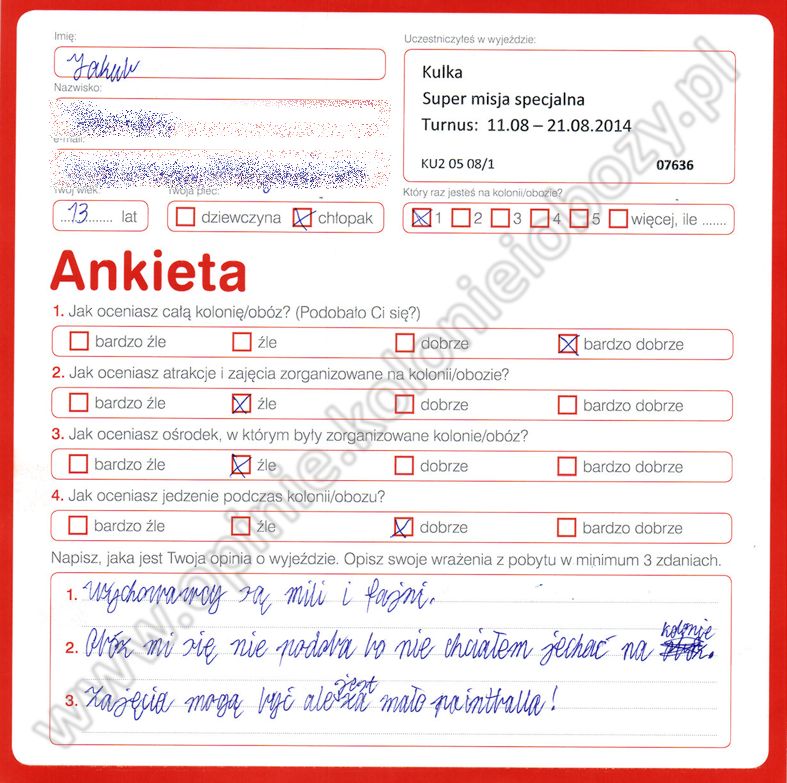 Imię:
Uczestniczyłeś w wyjeździe:
Jakub
Kulka
Super misja specjalna
Turnus: 11.08 – 21.08.2014
KU2 05 08/1 07636
Nazwisko:
e-mail:
Twój wiek: Twoja płeć:
Który raz jesteś na kolonii/obozie?
13 lat
dziewczyna chłopak
1 2 3 4 5 więcej, ile .......
Ankieta
1. Jak oceniasz całą kolonię/obóz? (Podobało Ci się?)
bardzo źle źle dobrze bardzo dobrze
2. Jak oceniasz atrakcje i zajęcia zorganizowane na kolonii/obozie?
bardzo źle źle dobrze bardzo dobrze
3. Jak oceniasz ośrodek, w którym były zorganizowane kolonie/obóz?
bardzo źle źle dobrze bardzo dobrze
4. Jak oceniasz jedzenie podczas kolonii/obozu?
bardzo źle źle dobrze bardzo dobrze
Napisz, jaka jest Twoja opinia o wyjeździe. Opisz swoje wrażenia z pobytu w minimum 3 zdaniach.
1. Wychowawcy są mili i fajni.
2. Obóz mi się nie podoba bo nie chciałem jechać na kolonie.
3. Zajęcia mogą być ale jest za mało paintballa!
www.opinie.kolonieiobozy.pl